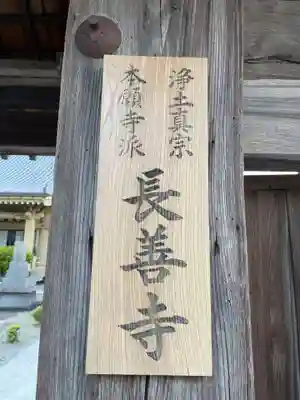 浄土真宗
本願寺派
長善寺